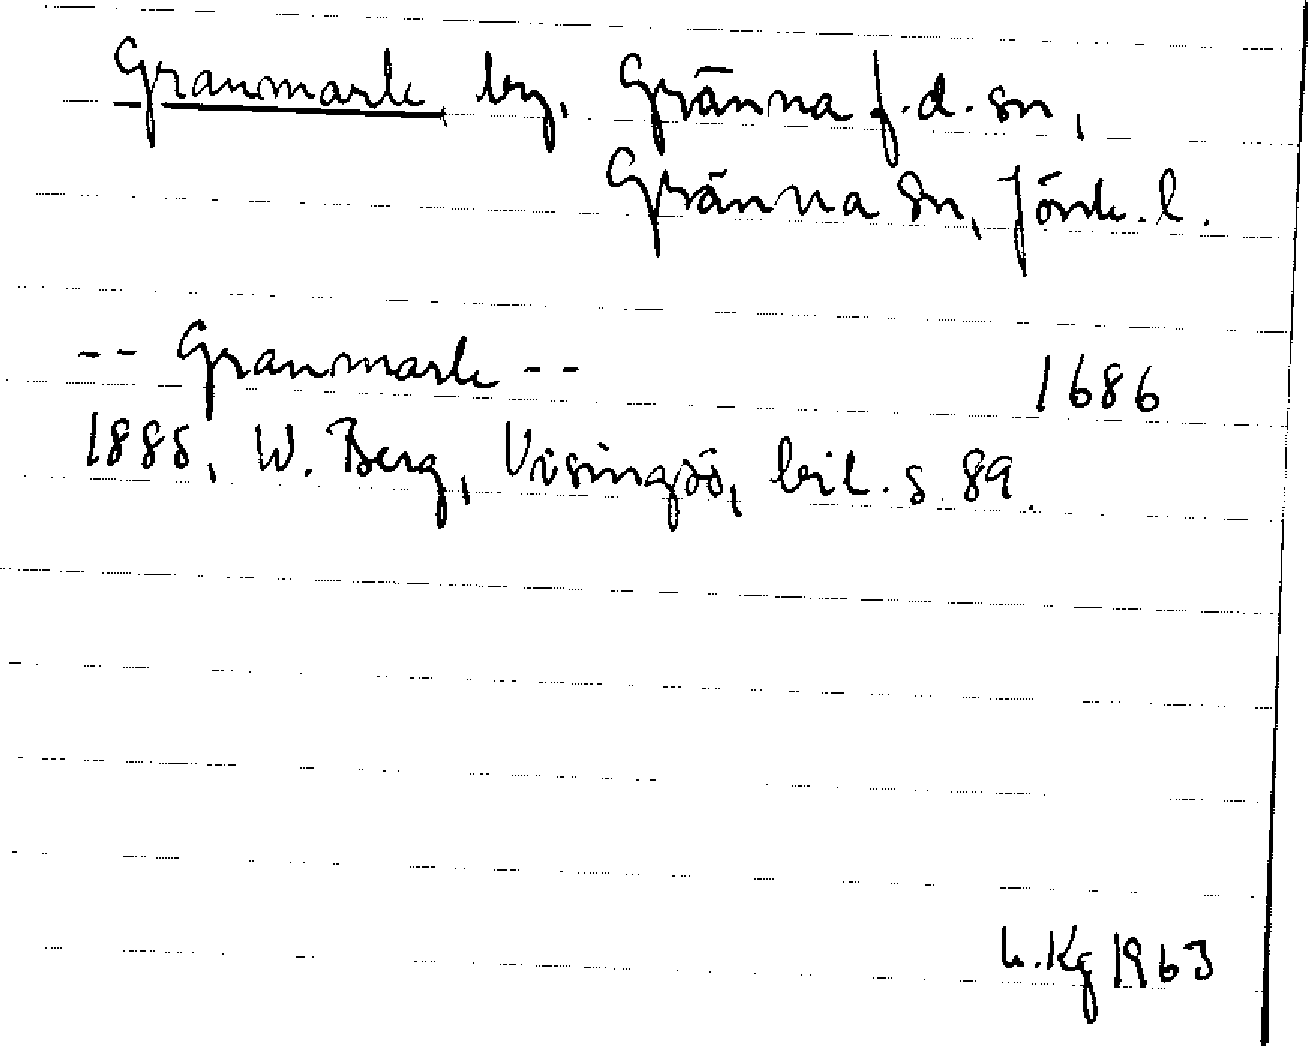 Granmark by, Gränna f.d. sn,
Gränna sn, Jönk. l.
-- Granmark -- 1686
1885, W. Berg, Visingsö, bil. s 89.
h. Kg 1963